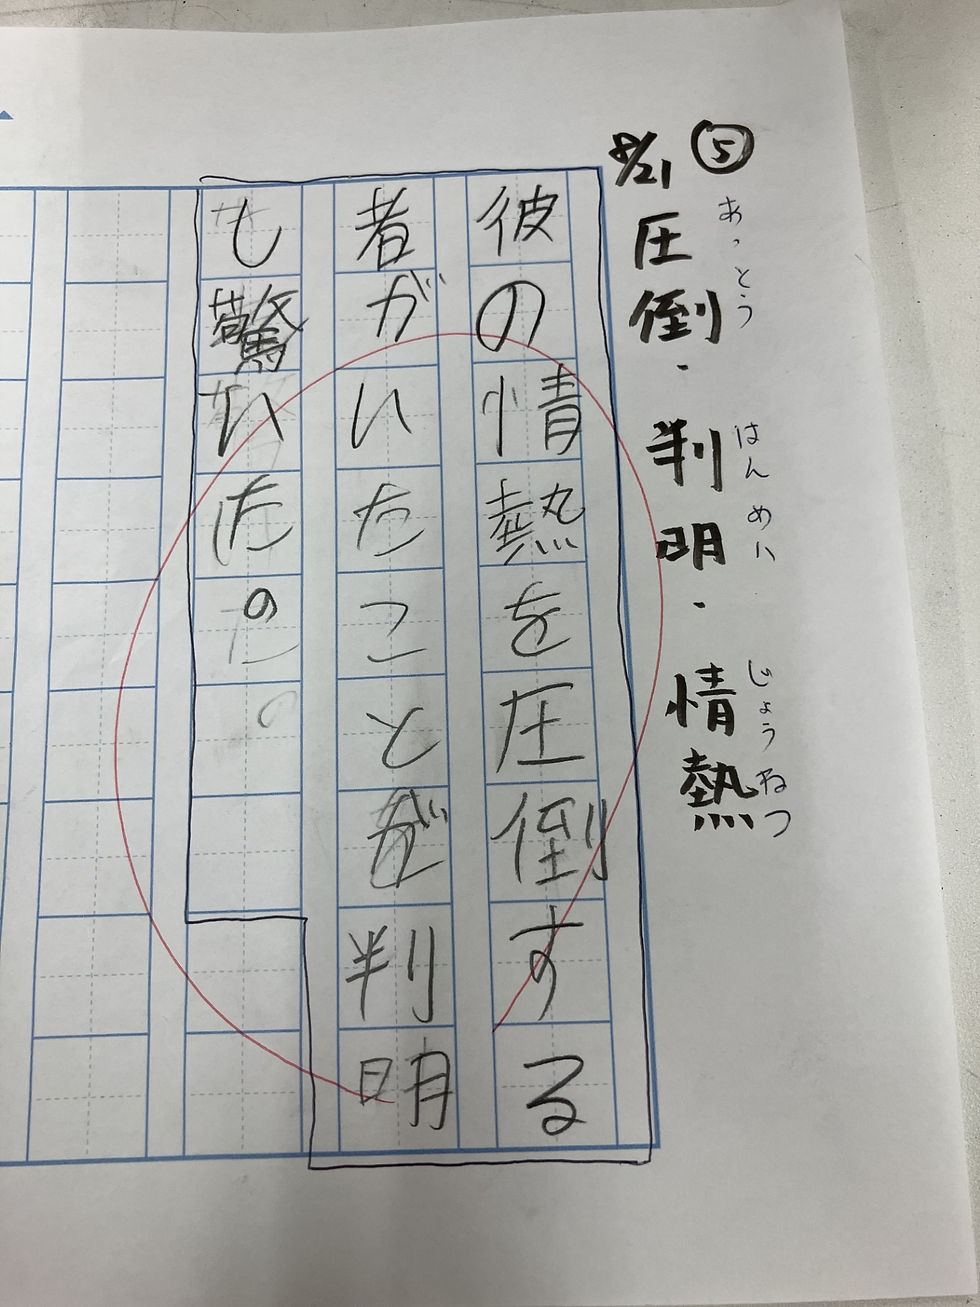 ⑤
8/21
あっとう はんめい じょうねつ
圧倒・判明・情熱
彼の情熱を圧倒する
者がいたことが判明
し驚いた。